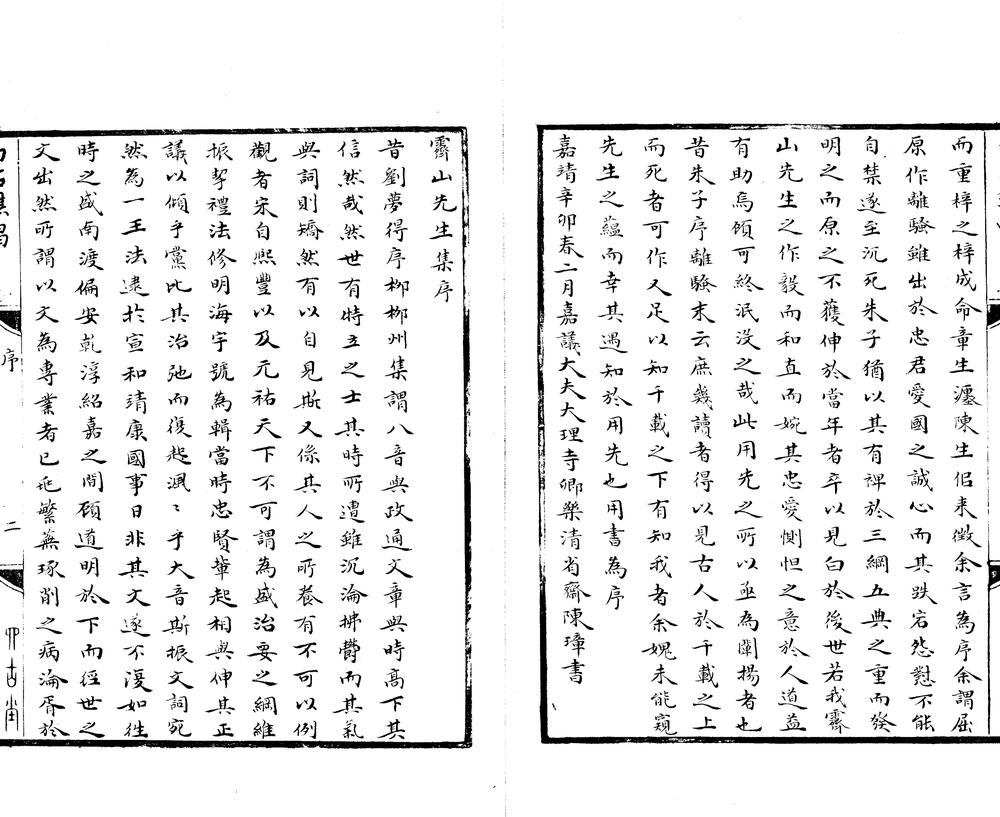 而重梓之梓成命章生瀍陳生侶来徵余言為序余謂屈
原作離騷雖出於忠君愛國之誠心而其跌宕怨懟不能
自禁遂至沉死朱子猶以其有裨於三綱五典之重而發
明之而原之不獲伸於當年者卒以見白於後世若我霽
山先生之作毅而和直而婉其忠愛惻怛之意於人道益
有助焉碩可終泯没之哉此用先之所以亟為闡揚者也
昔朱子序離騷末云庶幾讀者得以見古人於千載之上
而死者可作又足以知千載之下有知我者余媿未能窺
先生之蘊而幸其遇知於用先也用書為序
嘉靖辛卯春二月嘉議大夫大理寺卿樂清省齋陳璋書
霽山先生集序
昔劉夢得序栁栁州集謂八音與政通文章與時髙下其
信然哉然世有特立之士其時所遭雖沉淪拂欝而其氣
與詞則矯然有以自見斯又係其人之所養有不可以例
觀者宋自熙豐以及元祐天下不可謂為盛治要之綱維
振挈禮法修明海宇號為輯當時忠賢軰起相與伸其正
議以傾乎黨比其治弛而復起渢〻乎大音斯振文詞宛
然為一王法逮於宣和靖康國事日非其文遂不復如徃
時之盛南渡偏安乾淳紹嘉之間碩道明於下而經世之
文出然所謂以文為專業者已疪繁蕪琢削之病淪胥於
序
二